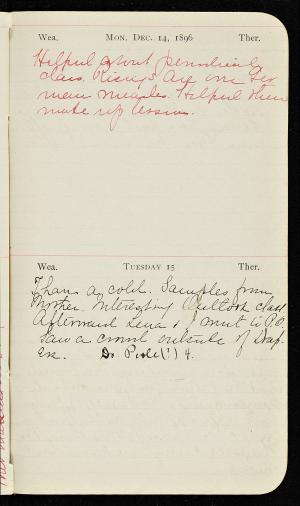 Wea. MON. DEC. 14, 1896 Ther.
Helped about
class. are on
measles. Helped them
make up lessons.
Wea. TUESDAY 15 Ther.
I have a cold. Samples from
Mother. Interesting Outlook class.
Afterward Lena & I went to P.O.
Saw a crowd outside of
Ex. Do (?) 4.